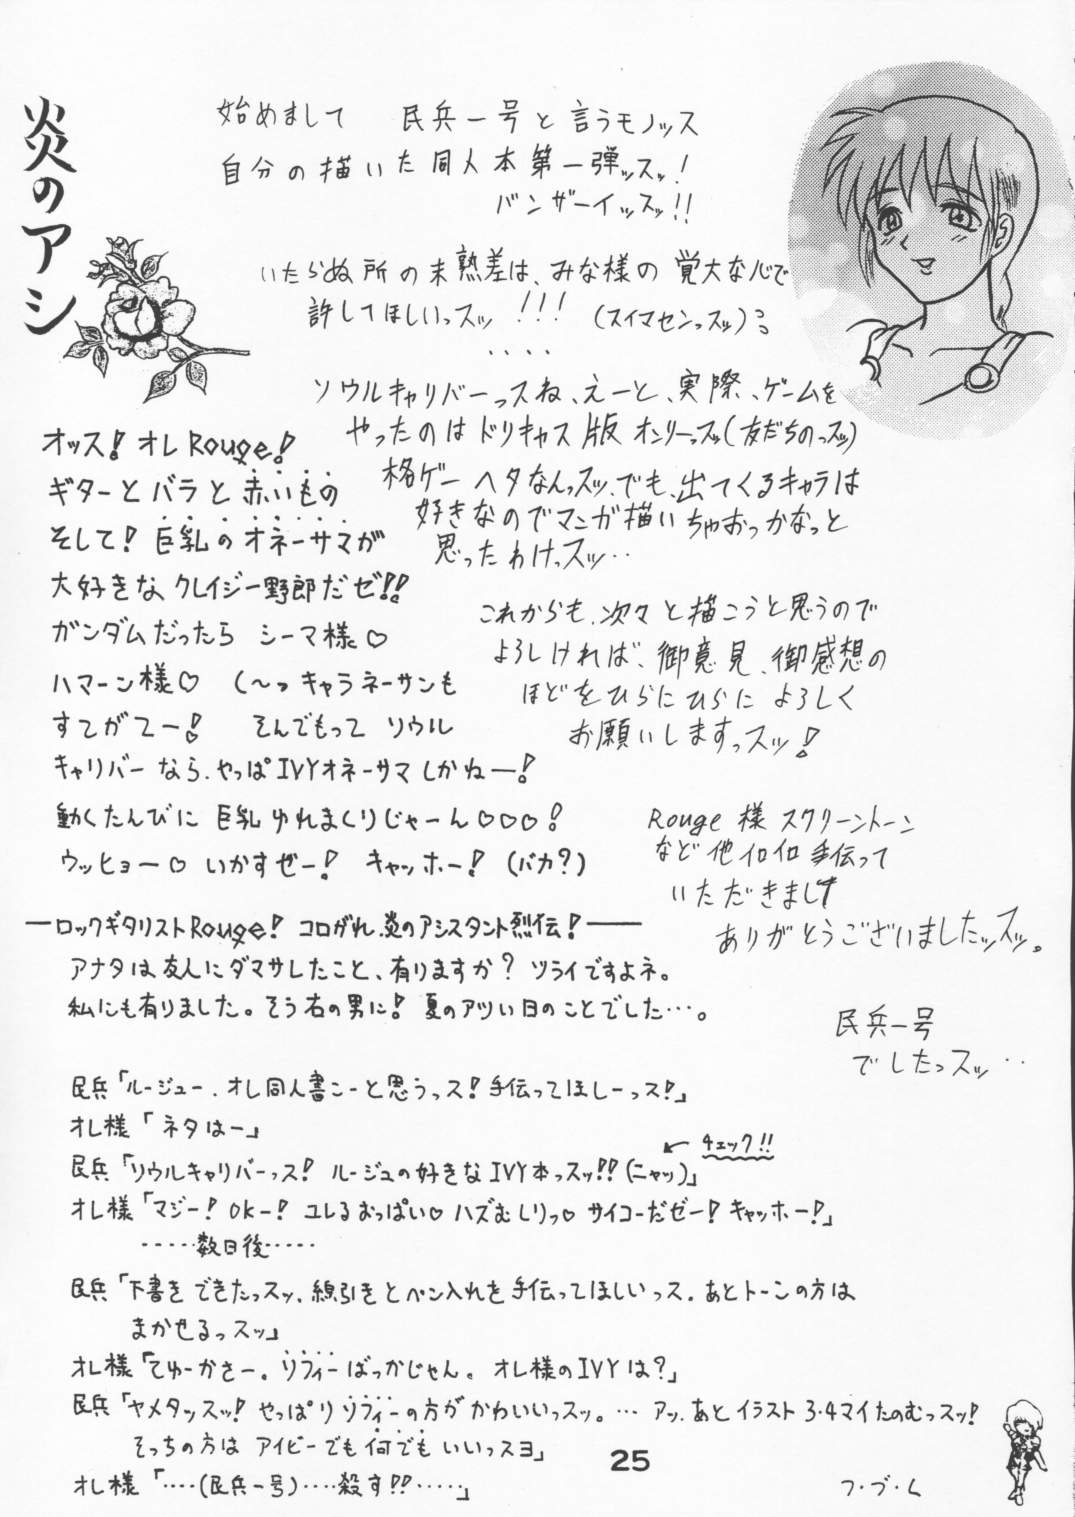 始めまして 民兵一号と言うモノッス
自分の描いた同人本第一弾ッスッ!
バンザーイッスッ!!
いたらぬ所の未熟差は、みな様の覚大な心で
許してほしいっスッ!!! (スイマセンっスッ)
‥‥
ソウルキャリバーっスね、えーと、実際、ゲームを
やったのはドリキャス版オンリーっスッ(友だちのっスッ)
格ゲーヘタなんっスッ、でも、出てくるキャラは
好きなのでマンガ描いちゃおっかなっと
思ったわけっスッ‥
これからも、次々と描こうと思うので
よろしければ、御意見、御感想の
ほどをひらにひらによろしく
お願いしますっスッ!
Rouge様 スクリーントーン
など他イロイロ手伝って
いただきまして
ありがとうございましたッスッ。
民兵一号
でしたっスッ‥
炎のアシ
オッス!オレRouge!
ギターとバラと赤いもの
そして!巨乳のオネーサマが
大好きなクレイジー野郎だゼ!!
ガンダムだったら シーマ様♡
ハマーン様♡ (〜っキャラネーサンも
すてがてー! そんでもって ソウル
キャリバーなら、やっぱIVYオネーサマしかねー!
動くたんびに 巨乳ゆれまくりじゃーん♡♡♡!
ウッヒョー♡ いかすぜー! キャッホー! (バカ?)
―ロックギタリストRouge! コロがれ、炎のアシスタント烈伝!―
アナタは友人にダマサレたこと、有りますか? ツライですよネ。
私にも有りました。そう右の男に! 夏のアツい日のことでした…。
民兵「ルージュー、オレ同人書こーと思うっス!手伝ってほしーっス!」
オレ様「ネタはー」
民兵「ソウルキャリバーっス! ルージュの好きなIVY本っスッ!!(ニャッ)」
←チェック!!
オレ様「マジー!OKー! ユレるおっぱい♡ ハズむしりっ♡ サイコーだゼー! キャッホー!」
‥‥‥数日後‥‥‥
民兵「下書きできたっスッ、線引きとペン入れを手伝ってほしいっス、あとトーンの方は
まかせるっスッ」
オレ様「てゆーかさー。ソフィーばっかじゃん。オレ様のIVYは?」
民兵「ヤメタッスッ! やっぱりソフィーの方がかわいいっスッ。… アッ、あとイラスト3・4マイたのむっスッ!
そっちの方は アイビーでも何でもいいっスヨ」
オレ様「‥‥(民兵一号)‥‥殺す!!‥‥‥」
25
フ・ヅ・ク